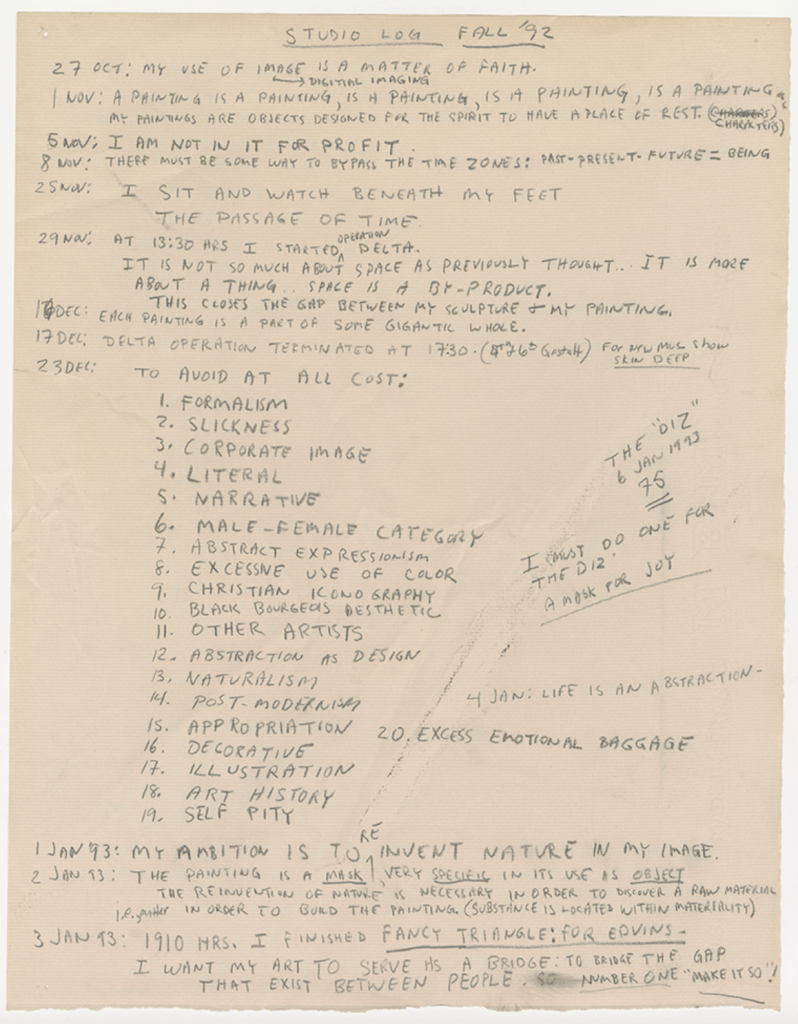 STUDIO LOG FALL '92
27 OCT: MY USE OF IMAGE IS A MATTER OF FAITH.
→ DIGITIAL IMAGING
1 NOV: A PAINTING IS A PAINTING, IS A PAINTING, IS A PAINTING, IS A PAINTING
MY PAINTINGS ARE OBJECTS DESIGNED FOR THE SPIRIT TO HAVE A PLACE OF REST. (CHARACTERS)
5 NOV: I AM NOT IN IT FOR PROFIT.
8 NOV: THERE MUST BE SOME WAY TO BYPASS THE TIME ZONES: PAST-PRESENT-FUTURE = BEING
25 NOV: I SIT AND WATCH BENEATH MY FEET
THE PASSAGE OF TIME.
29 NOV: AT 13:30 HRS I STARTED OPERATION DELTA.
IT IS NOT SO MUCH ABOUT SPACE AS PREVIOUSLY THOUGHT... IT IS MORE
ABOUT A THING... SPACE IS A BY-PRODUCT.
THIS CLOSES THE GAP BETWEEN MY SCULPTURE & MY PAINTING.
DEC: EACH PAINTING IS A PART OF SOME GIGANTIC WHOLE.
17 DEC: DELTA OPERATION TERMINATED AT 17:30. FOR NEW MUS. SHOW
SKIN DEEP
23 DEC: TO AVOID AT ALL COST:
1. FORMALISM
2. SLICKNESS
3. CORPORATE IMAGE
4. LITERAL
5. NARRATIVE
6. MALE-FEMALE CATEGORY
7. ABSTRACT EXPRESSIONISM
8. EXCESSIVE USE OF COLOR
9. CHRISTIAN ICONOGRAPHY
10. BLACK BOURGEOIS AESTHETIC
11. OTHER ARTISTS
12. ABSTRACTION AS DESIGN
13. NATURALISM
14. POST-MODERNISM
15. APPROPRIATION
16. DECORATIVE
17. ILLUSTRATION
18. ART HISTORY
19. SELF PITY
20. EXCESS EMOTIONAL BAGGAGE
THE "DIZ"
6 JAN 1993
75
I MUST DO ONE FOR
THE DIZ.
A MASK FOR JOY
4 JAN: LIFE IS AN ABSTRACTION-
1 JAN '93: MY AMBITION IS TO RE INVENT NATURE IN MY IMAGE.
2 JAN 93: THE PAINTING IS A MASK, VERY SPECIFIC IN ITS USE AS OBJECT
THE REINVENTION OF NATURE IS NECESSARY IN ORDER TO DISCOVER A RAW MATERIAL
IN ORDER TO BUILD THE PAINTING. (SUBSTANCE IS LOCATED WITHIN MATERIALITY)
3 JAN 93: 1910 HRS. I FINISHED FANCY TRIANGLE: FOR EDVINS-
I WANT MY ART TO SERVE AS A BRIDGE: TO BRIDGE THE GAP
THAT EXIST BETWEEN PEOPLE. SO NUMBER ONE "MAKE IT SO"!